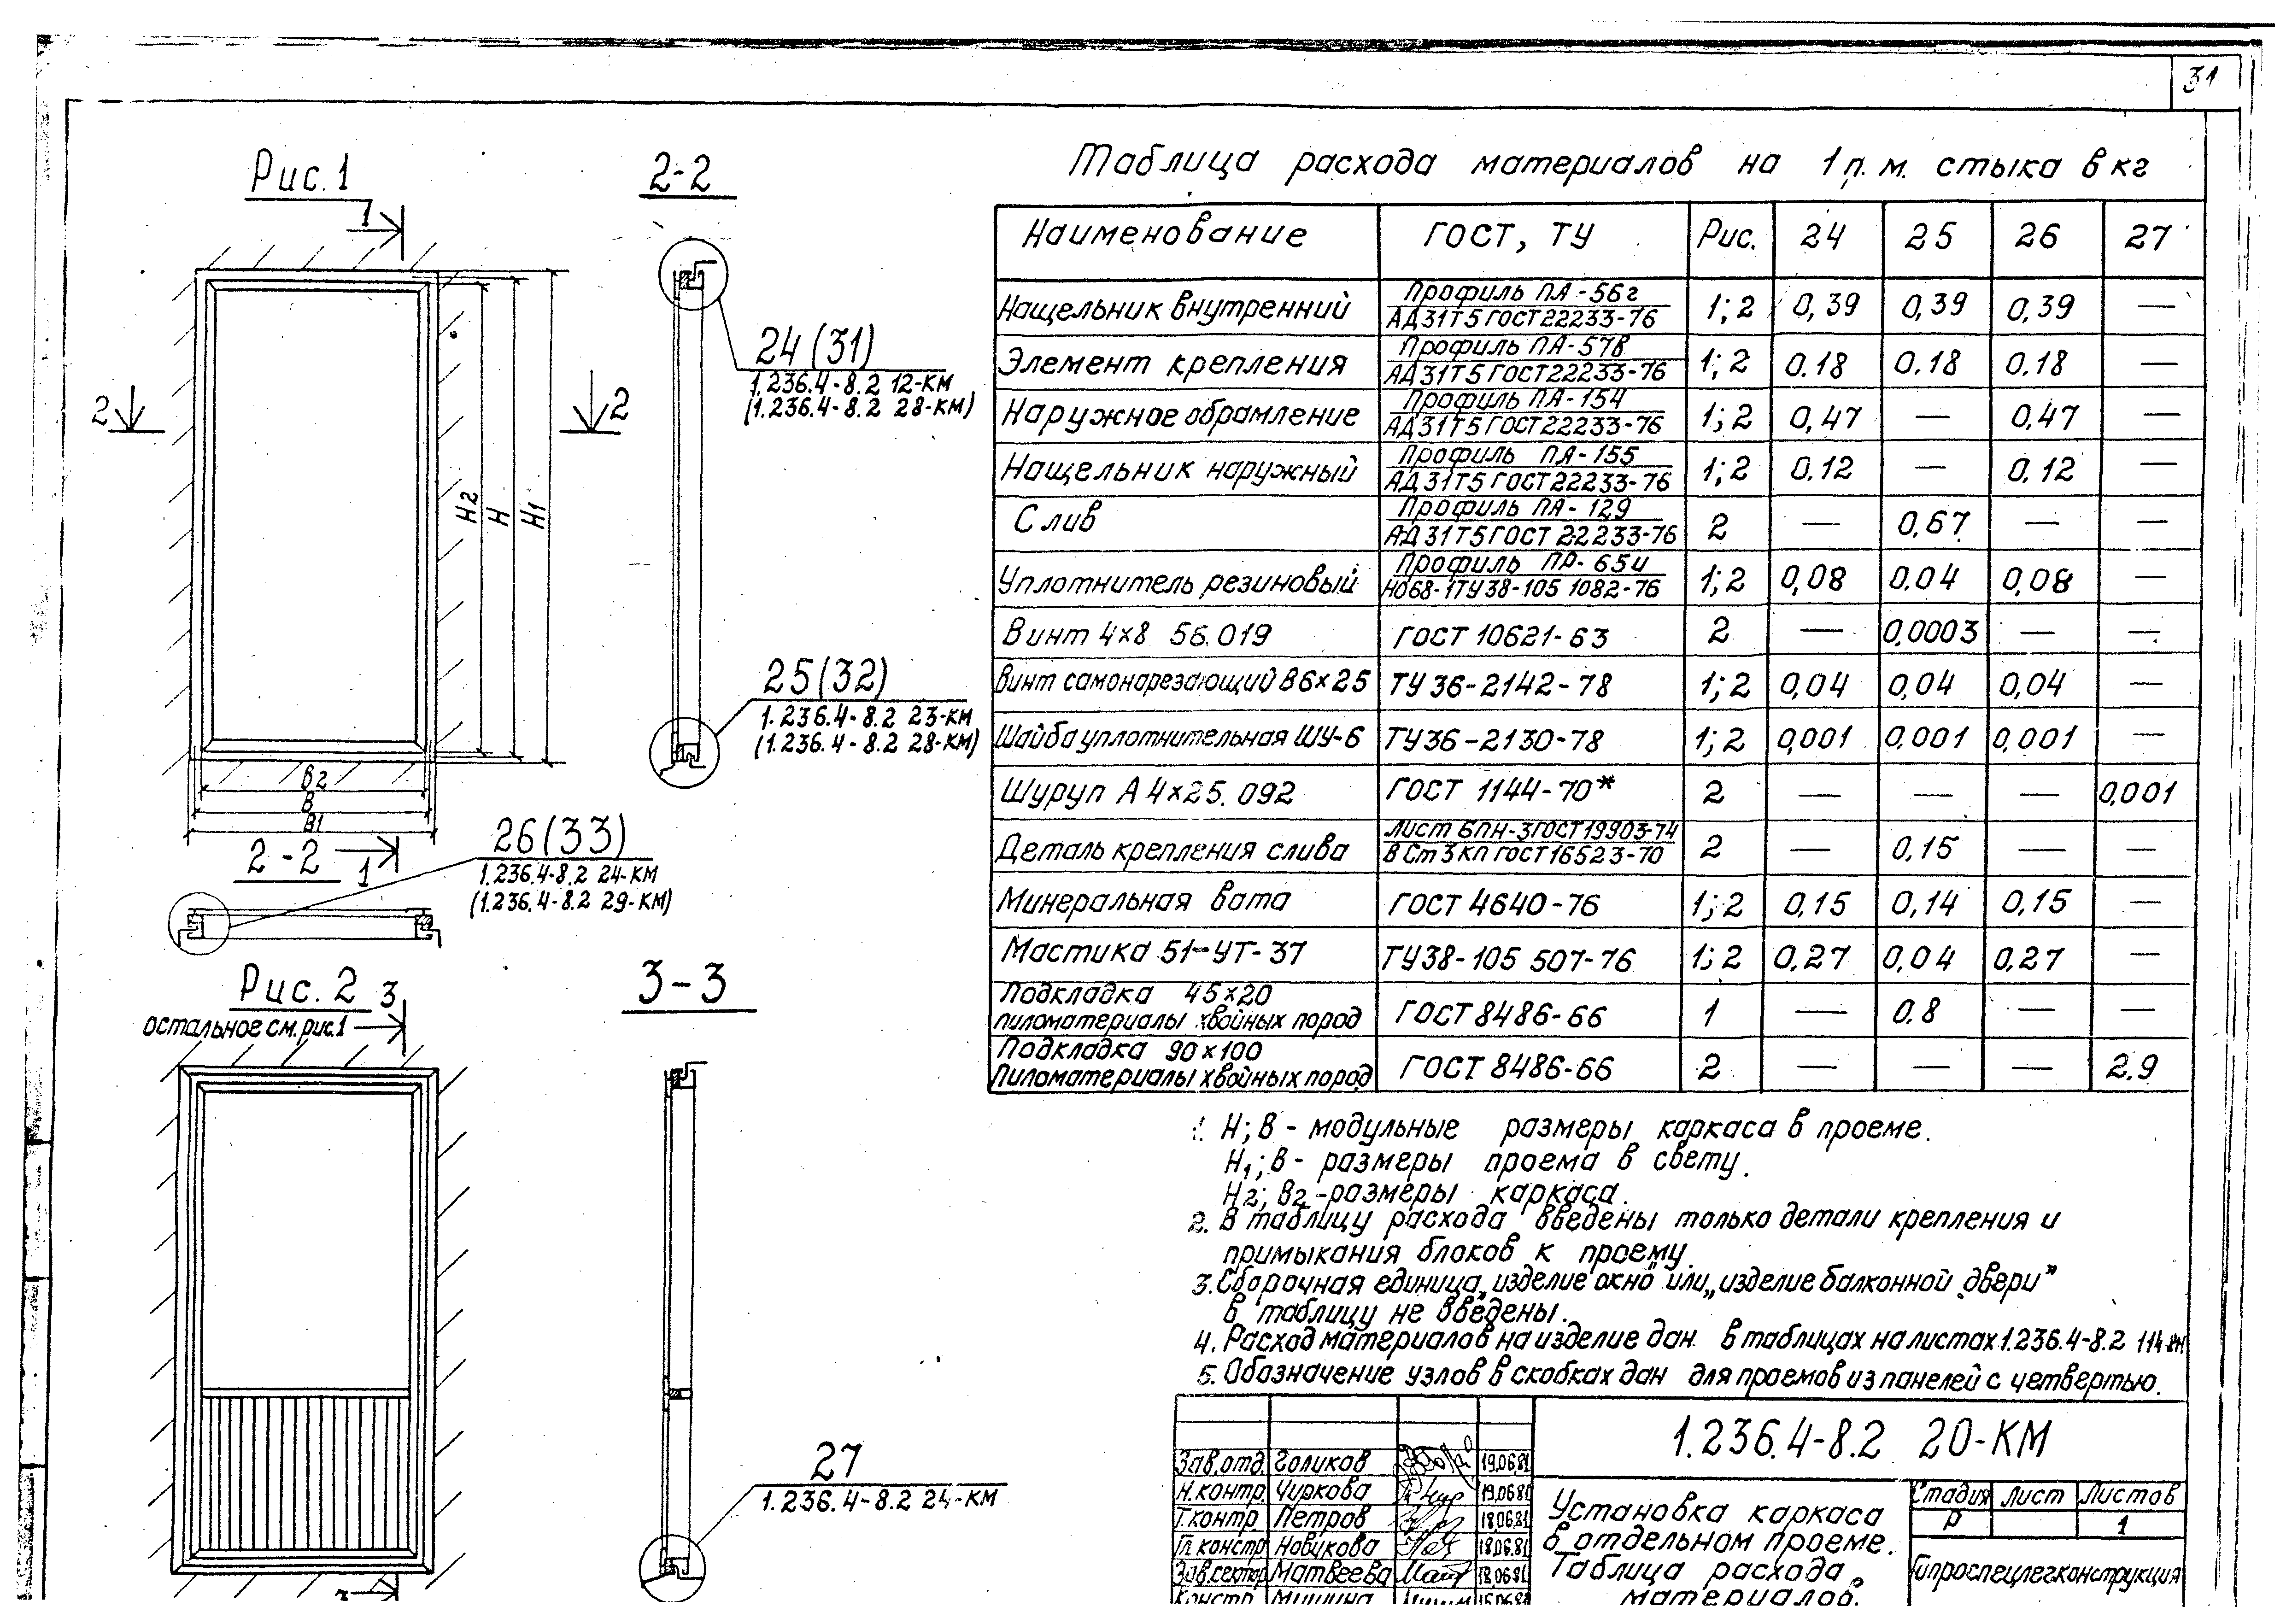 31
Рис.1
1
2-2
2
2
H2
H
H1
24(31)
1.236.4-8.2 12-КМ
(1.236.4-8.2 28-КМ)
25(32)
1.236.4-8.2 23-КМ
(1.236.4-8.2 28-КМ)
В2
В
В1
2-2
1
26(33)
1.236.4-8.2 24-КМ
(1.236.4-8.2 29-КМ)
Рис. 2
3
остальное см. рис.1
3-3
27
1.236.4-8.2 24-КМ
3
Таблица расхода материалов на 1 п.м. стыка в кг
Наименование ГОСТ, ТУ Рис. 24 25 26 27
Нащельник внутренний Профиль ПА-56г АД31Т5 ГОСТ22233-76 1;2 0,39 0,39 0,39 —
Элемент крепления Профиль ПА-57в АД31Т5 ГОСТ22233-76 1;2 0.18 0.18 0.18 —
Наружное обрамление Профиль ПА-154 АД31Т5 ГОСТ22233-76 1;2 0,47 — 0,47 —
Нащельник наружный Профиль ПА-155 АД31Т5 ГОСТ22233-76 1;2 0.12 — 0,12 —
Слив Профиль ПА-129 АД31Т5 ГОСТ 22233-76 2 — 0,67 — —
Уплотнитель резиновый Профиль ПР-65и НО68-1ТУ38-105 1082-76 1;2 0,08 0.04 0,08 —
Винт 4×8 56.019 ГОСТ 10621-63 2 — 0,0003 — —
Винт самонарезающий В6×25 ТУ36-2142-78 1;2 0,04 0,04 0,04 —
Шайба уплотнительная ШУ-6 ТУ36-2130-78 1;2 0,001 0,001 0,001 —
Шуруп А 4×25.092 ГОСТ 1144-70* 2 — — — 0,001
Деталь крепления слива Лист БПН-3ГОСТ19903-74 В Ст3КП ГОСТ16523-70 2 — 0,15 — —
Минеральная вата ГОСТ 4640-76 1;2 0,15 0,14 0,15 —
Мастика 51-УТ-37 ТУ38-105 507-76 1;2 0,27 0,04 0,27 —
Подкладка 45×20
пиломатериалы хвойных пород ГОСТ8486-66 1 — 0.8 — —
Подкладка 90×100
Пиломатериалы хвойных пород ГОСТ 8486-66 2 — — — 2.9
1. Н; В - модульные размеры каркаса в проеме.
Н1; В - размеры проема в свету.
Н2; В2 - размеры каркаса.
2. В таблицу расхода введены только детали крепления и
примыкания блоков к проему.
3. Сборочная единица „изделие окно" или „изделие балконной двери"
в таблицу не введены.
4. Расход материалов на изделие дан в таблицах на листах 1.236.4-8.2
5. Обозначение узлов в скобках дан для проемов из панелей с четвертью.
1.236.4-8.2 20-КМ
Зав.отд. Голиков 19.06.81
Н.контр. Чуркова 19.06.81
Т.контр. Петров 18.06.81
Гл.констр Новикова 18.06.81
Зав.сектор Матвеева 18.06.81
Констр. Мишина
Установка каркаса
в отдельном проеме.
Таблица расхода
материалов.
Стадия Лист Листов
Р 1
Гипроспецлегконструкция